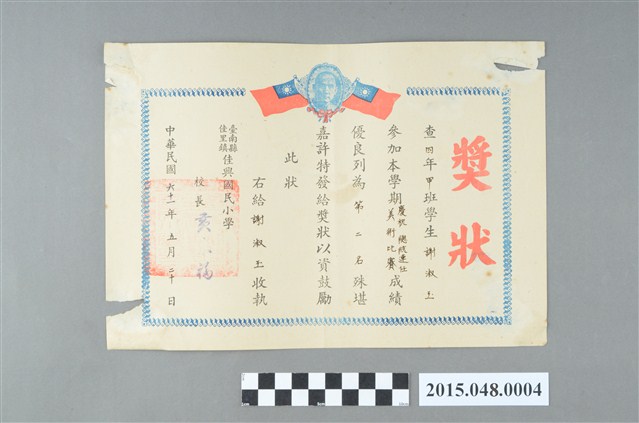 獎狀
查四年甲班學生謝淑玉
參加本學期慶祝總統連任美術比賽成績
優良列為第二名殊堪
嘉許特發給獎狀以資鼓勵
此狀
右給謝淑玉收執
臺南縣
佳里鎮
佳興國民小學
校長黃
中華民國六十一年五月二十日
2015.048.0004